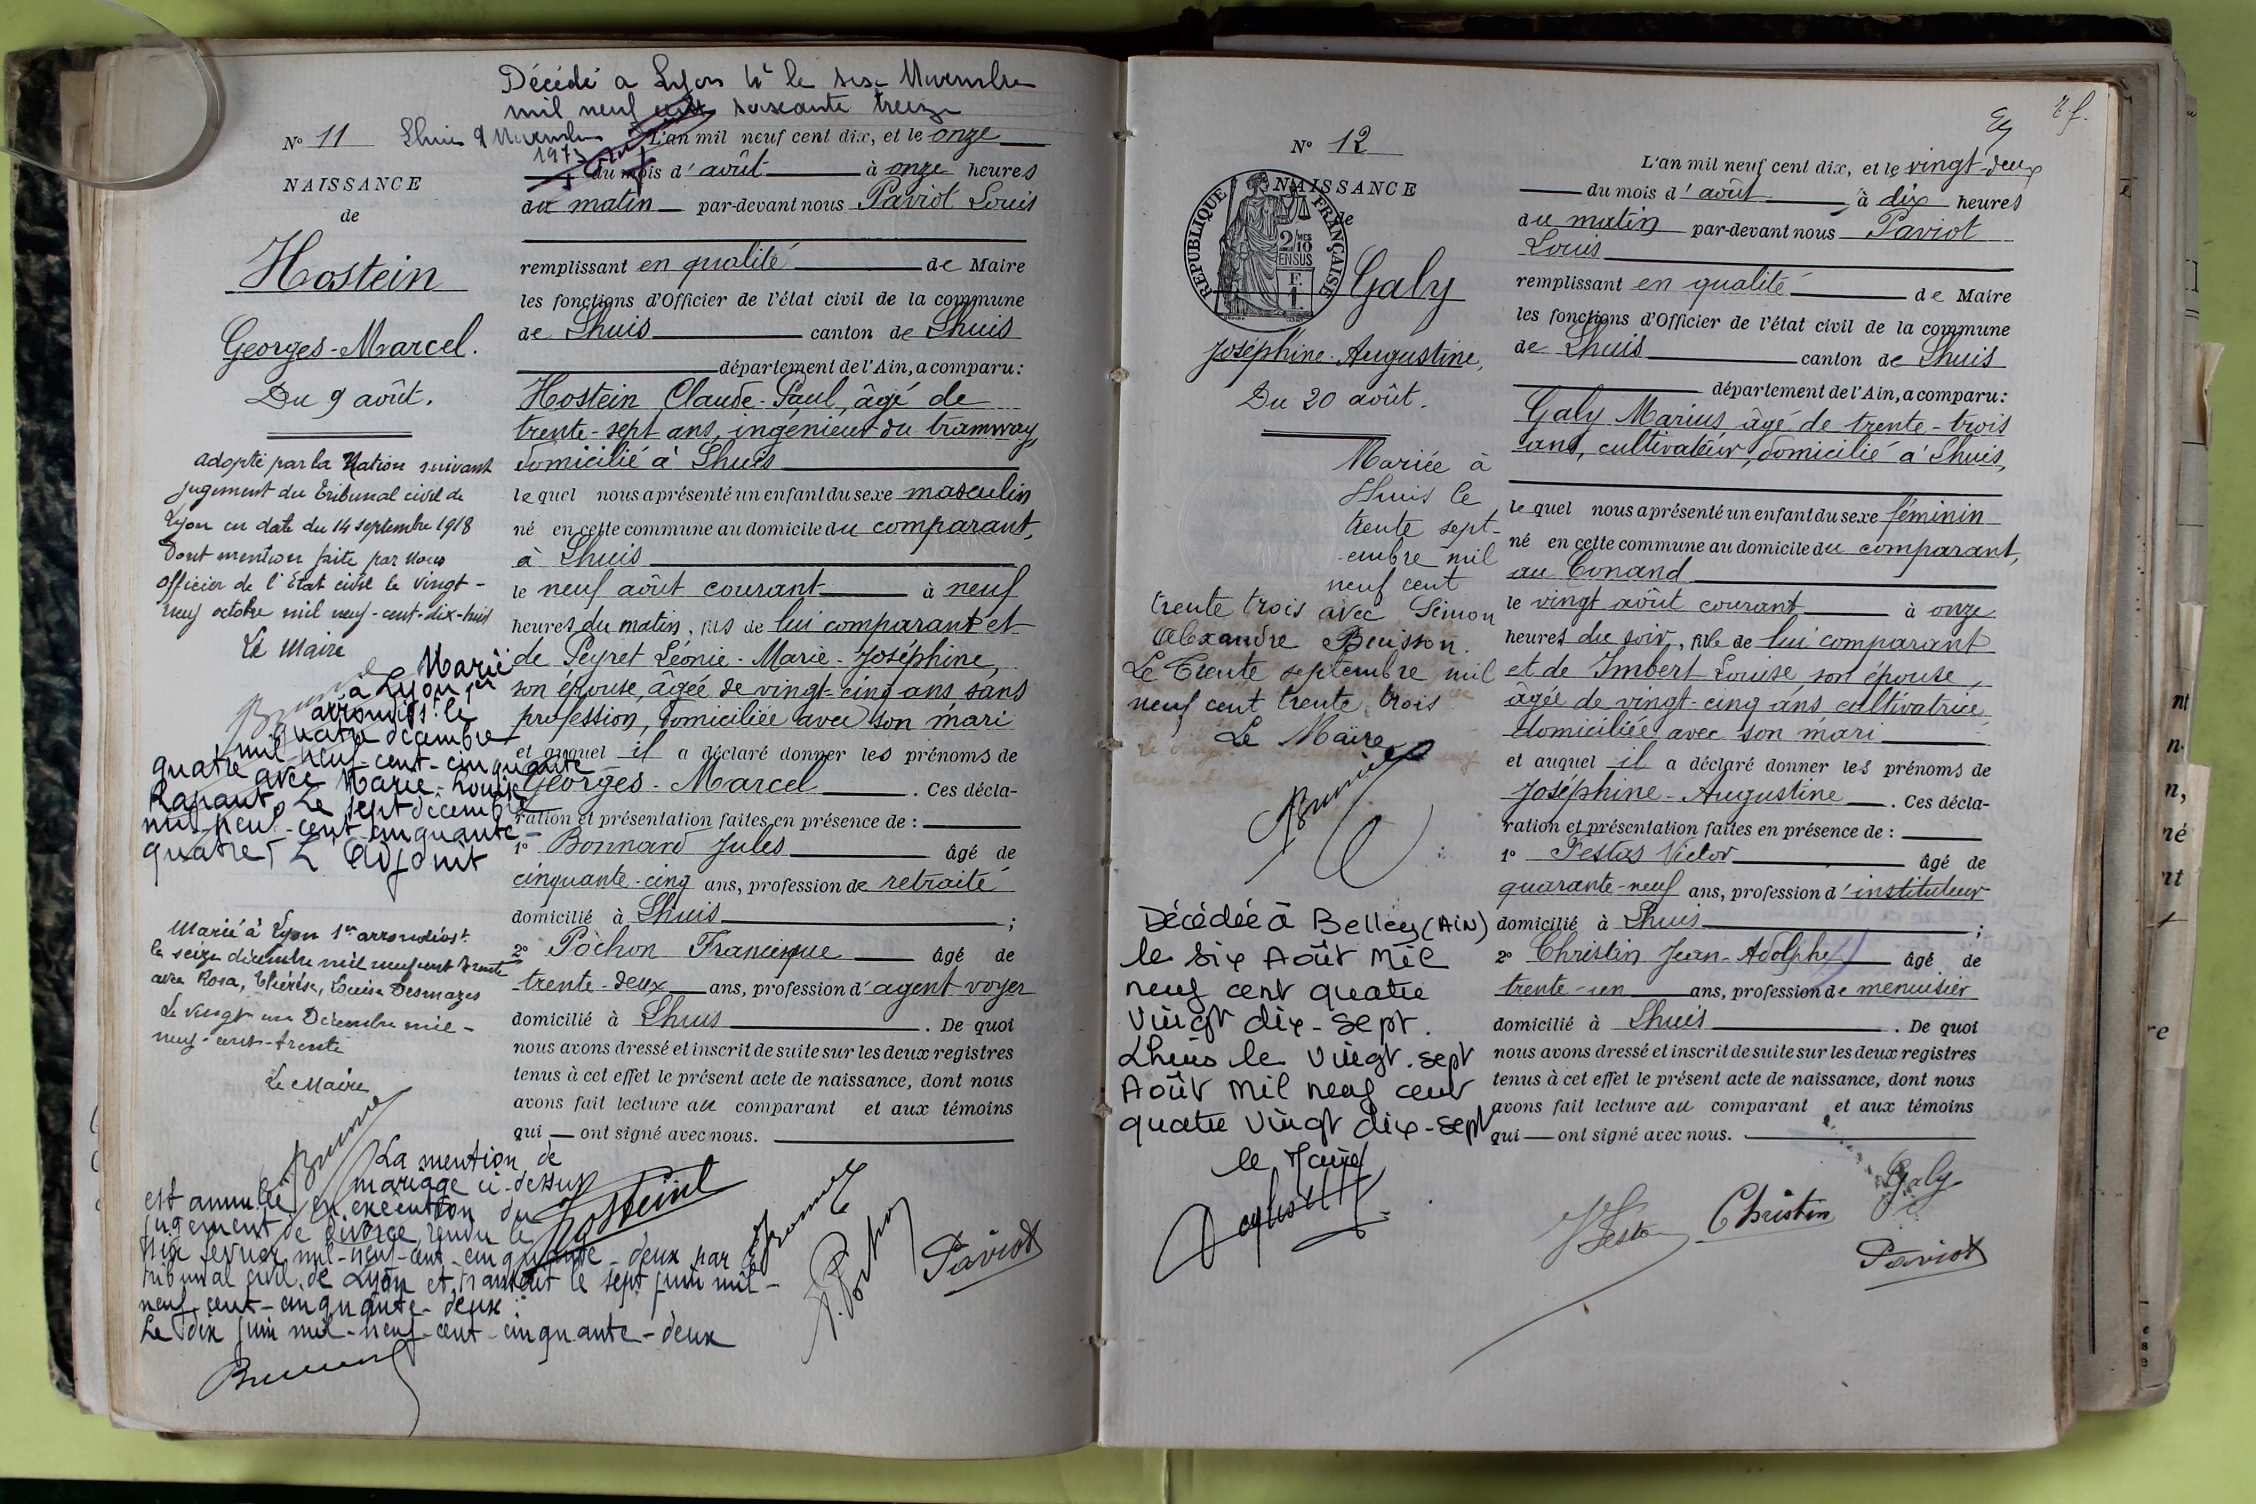 Décédé a Lyon 4e le six Novembre
mil neuf cent soixante treize
Lhuis 9 Novembre
1973
N° 11
NAISSANCE
de
Hostein
Georges-Marcel.
Du 9 août.
adopté par la Nation suivant
jugement du Tribunal civil de
Lyon en date du 14 septembre 1918
Dont mention faite par nous
officier de l'Etat civil le vingt-
neuf octobre mil neuf-cent-dix-huit
Le Maire
Marié
à Lyon 1er
arrondisst. le
quatre décembre
mil neuf-cent-cinquante
quatre avec Marie-Louise
Rapaut. Le sept décembre
mil-neuf-cent-cinquante-
quatre, L'Adjoint
Marié à Lyon 1er arrondisst.
le seize décembre mil neuf cent trente
avec Rosa, Thérèse, Louise Desmazes
Le vingt un Décembre mil-
neuf-cent-trente
Le Maire
La mention de
mariage ci-dessus
est annulée en exécution du
jugement de divorce rendu le
février mil-neuf-cent-cinquante-deux par le
tribunal civil de Lyon et transcrit le sept juin mil-
neuf-cent-cinquante-deux.
Le dix juin mil-neuf-cent-cinquante-deux
L'an mil neuf cent dix, et le onze
du mois d'août à onze heures
du matin par-devant nous Paviot Louis
remplissant en qualité de Maire
les fonctions d'Officier de l'état civil de la commune
de Lhuis canton de Lhuis
département de l'Ain, a comparu:
Hostein Claude-Paul, âgé de
trente-sept ans, ingénieur du tramway,
domicilié à Lhuis
lequel nous a présenté un enfant du sexe masculin
né en cette commune au domicile du comparant,
à Lhuis
le neuf août courant à neuf
heures du matin, fils de lui comparant et
de Peyret Léonie-Marie-Joséphine,
son épouse, âgée de vingt-cinq ans, sans
profession, domiciliée avec son mari
et auquel il a déclaré donner les prénoms de
Georges-Marcel. Ces décla-
ration et présentation faites en présence de :
1° Bonnard Jules âgé de
cinquante-cinq ans, profession de retraité
domicilié à Lhuis ;
2° Pochon Francisque âgé de
trente-deux ans, profession d'agent voyer
domicilié à Lhuis. De quoi
nous avons dressé et inscrit de suite sur les deux registres
tenus à cet effet le présent acte de naissance, dont nous
avons fait lecture au comparant et aux témoins
qui — ont signé avec nous.
Hostein
Paviot
2 f.
N° 12
NAISSANCE
de
RÉPUBLIQUE FRANÇAISE
Galy
Joséphine-Augustine,
Du 20 août.
Mariée à
Lhuis le
trente sept-
embre mil
neuf cent
trente trois avec Simon
Alexandre Buisson.
Le Trente septembre mil
neuf cent trente trois
Le Maire
Décédée à Belley (AIN)
le Six Août Mil
neuf cent quatre
vingt dix-sept.
Lhuis le vingt-sept
Août Mil neuf cent
quatre vingt dix-sept
le Maire
L'an mil neuf cent dix, et le vingt-deux
du mois d'août, à dix heures
du matin par-devant nous Paviot
Louis
remplissant en qualité de Maire
les fonctions d'Officier de l'état civil de la commune
de Lhuis canton de Lhuis
département de l'Ain, a comparu:
Galy Marius âgé de trente-trois
ans, cultivateur, domicilié à Lhuis,
lequel nous a présenté un enfant du sexe féminin
né en cette commune au domicile du comparant,
au Conand
le vingt août courant à onze
heures du soir, fille de lui comparant
et de Imbert Louise son épouse,
âgée de vingt-cinq ans cultivatrice
domiciliée avec son mari
et auquel il a déclaré donner les prénoms de
Joséphine-Augustine. Ces décla-
ration et présentation faites en présence de :
1° Festas Victor âgé de
quarante-neuf ans, profession d'instituteur
domicilié à Lhuis ;
2° Christin Jean-Adolphe âgé de
trente-un ans, profession de menuisier
domicilié à Lhuis. De quoi
nous avons dressé et inscrit de suite sur les deux registres
tenus à cet effet le présent acte de naissance, dont nous
avons fait lecture au comparant et aux témoins
qui — ont signé avec nous.
Galy
Christin
Paviot